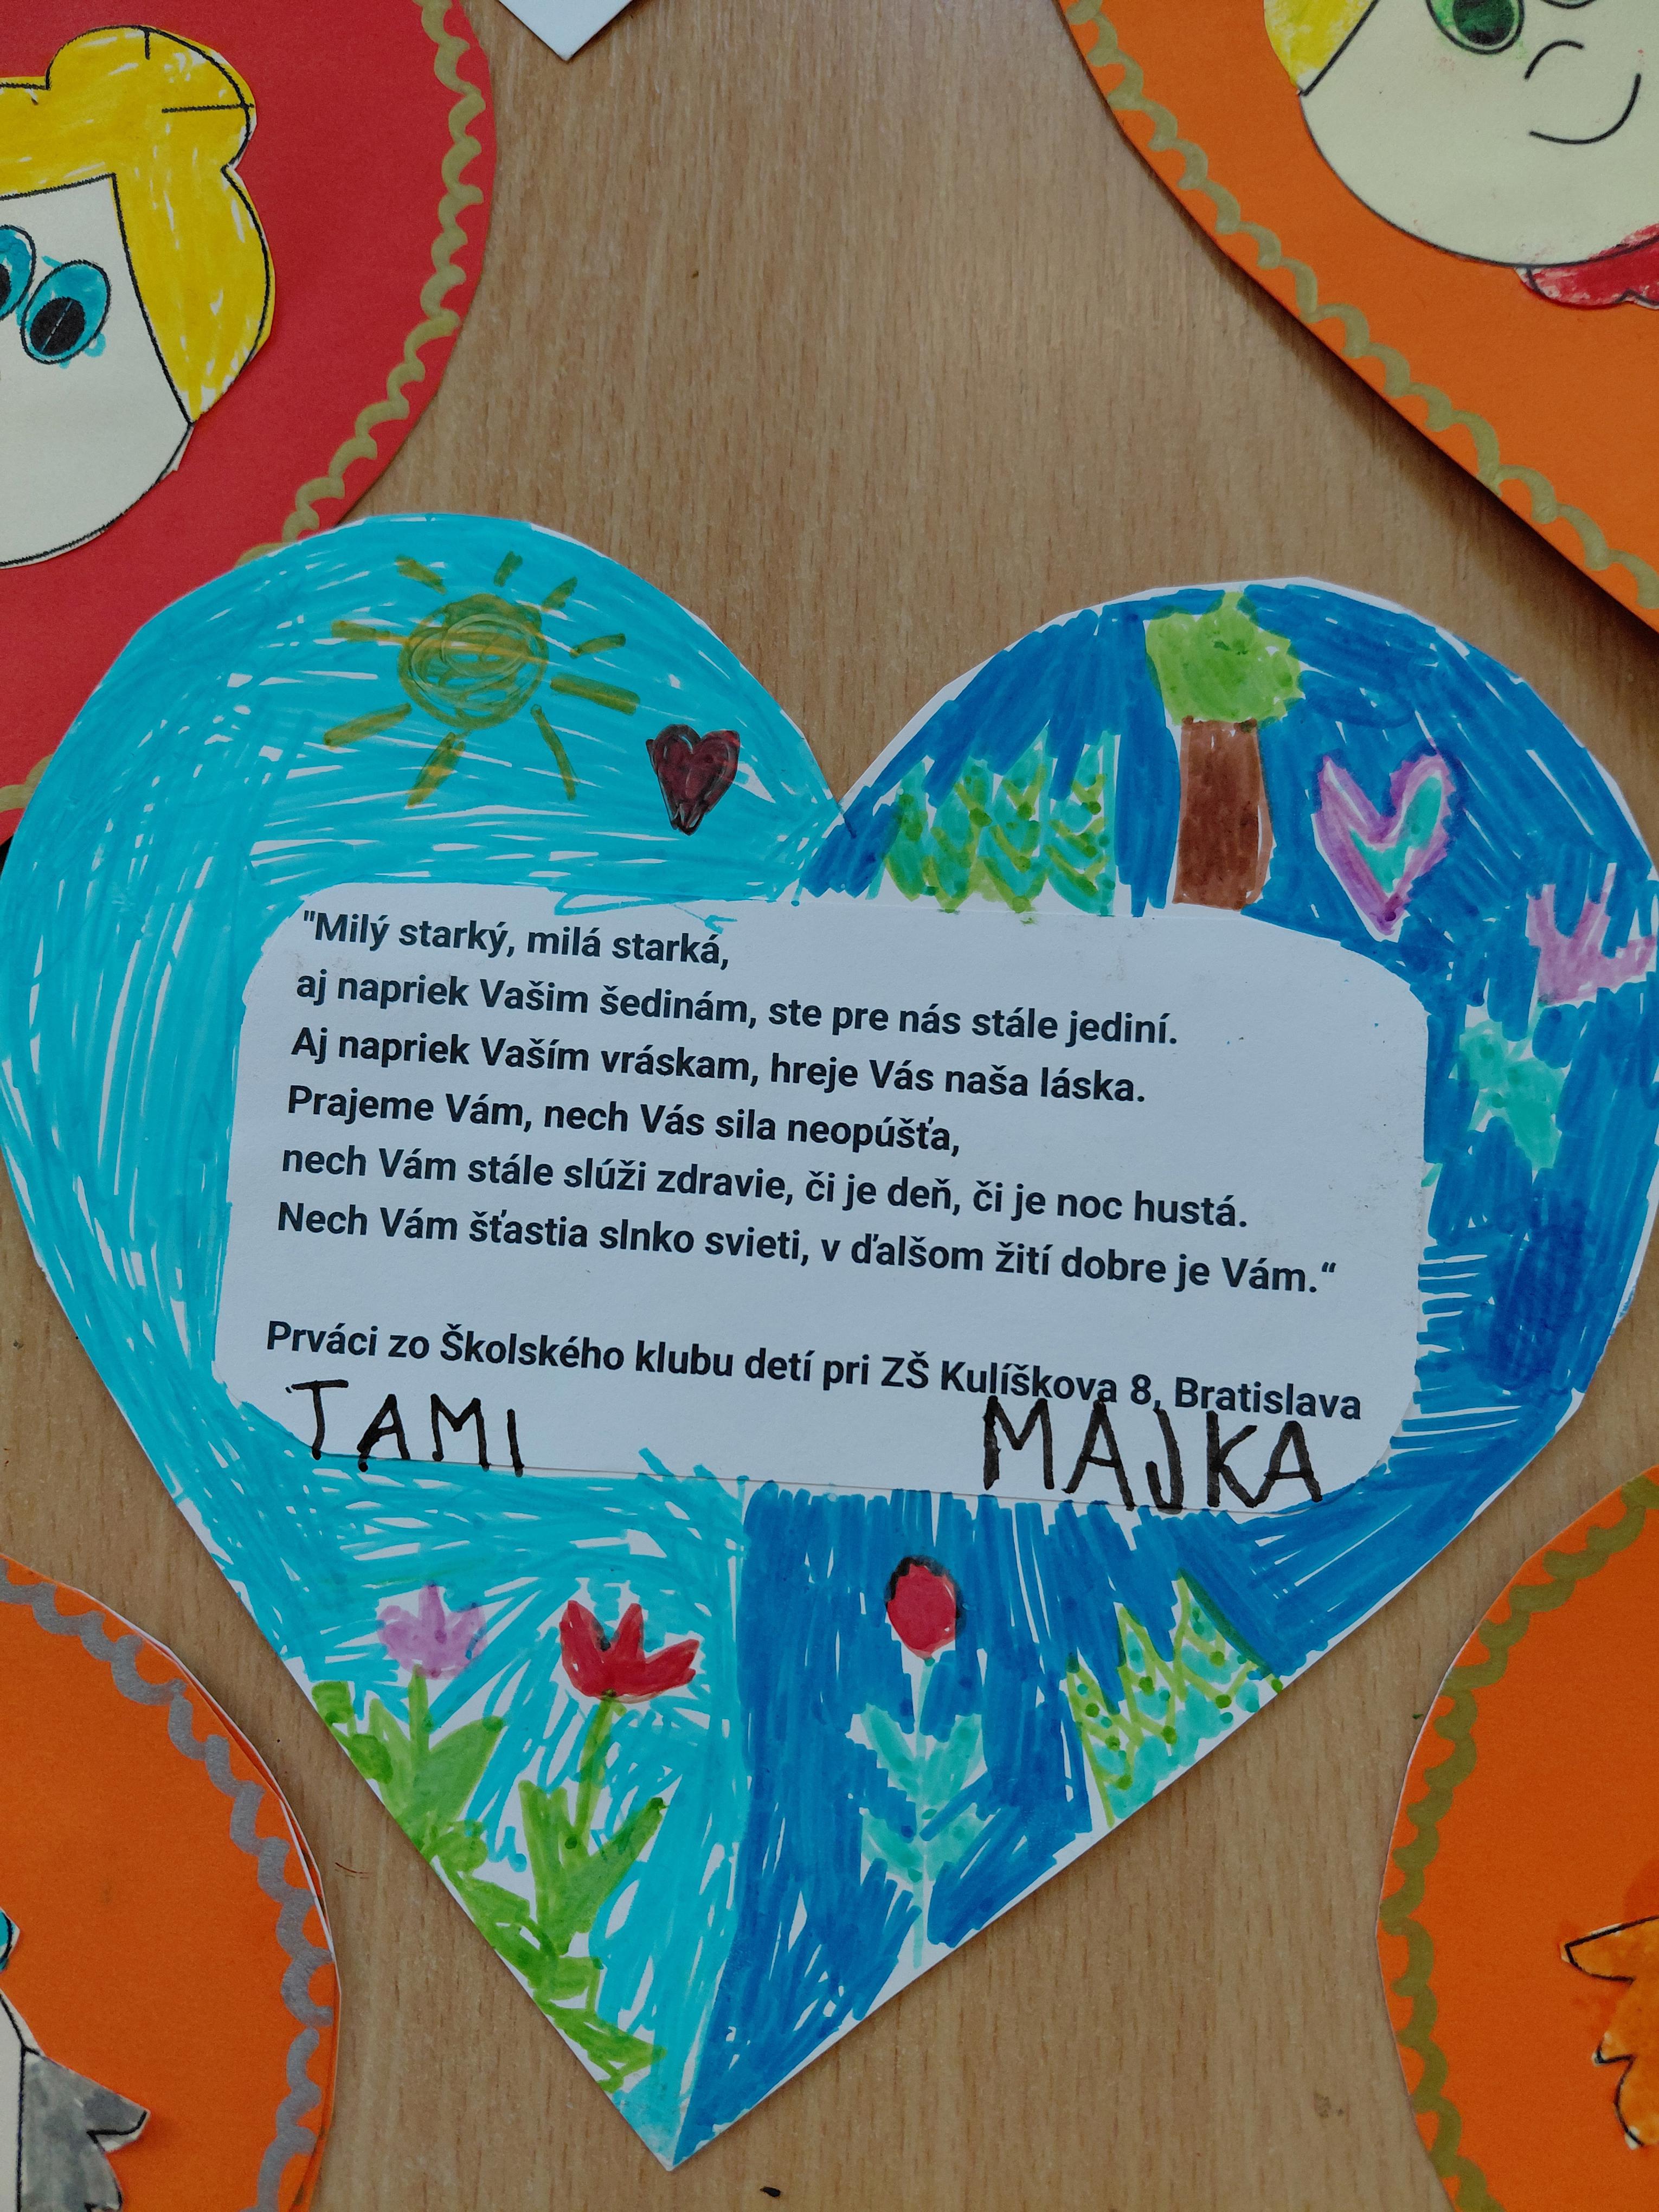 "Milý starký, milá starká,
aj napriek Vašim šedinám, ste pre nás stále jediní.
Aj napriek Vaším vráskam, hreje Vás naša láska.
Prajeme Vám, nech Vás sila neopúšťa,
nech Vám stále slúži zdravie, či je deň, či je noc hustá.
Nech Vám šťastia slnko svieti, v ďalšom žití dobre je Vám.“
Prváci zo Školského klubu detí pri ZŠ Kulíškova 8, Bratislava
TAMI MAJKA